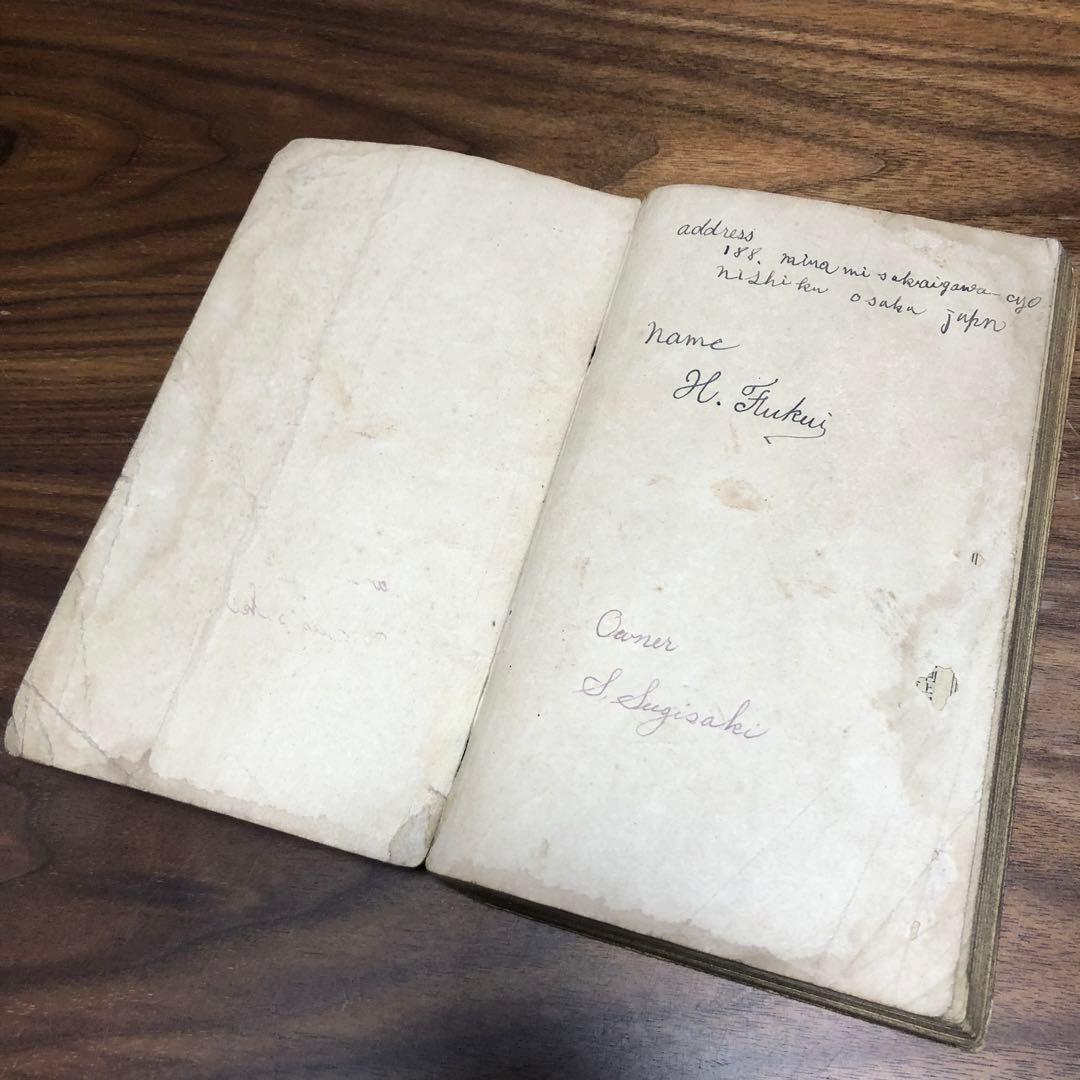 address
188. minami sakaigawa-cyo
nishiku osaka japn
name
H. Fukui
Owner
S. Sugisaki